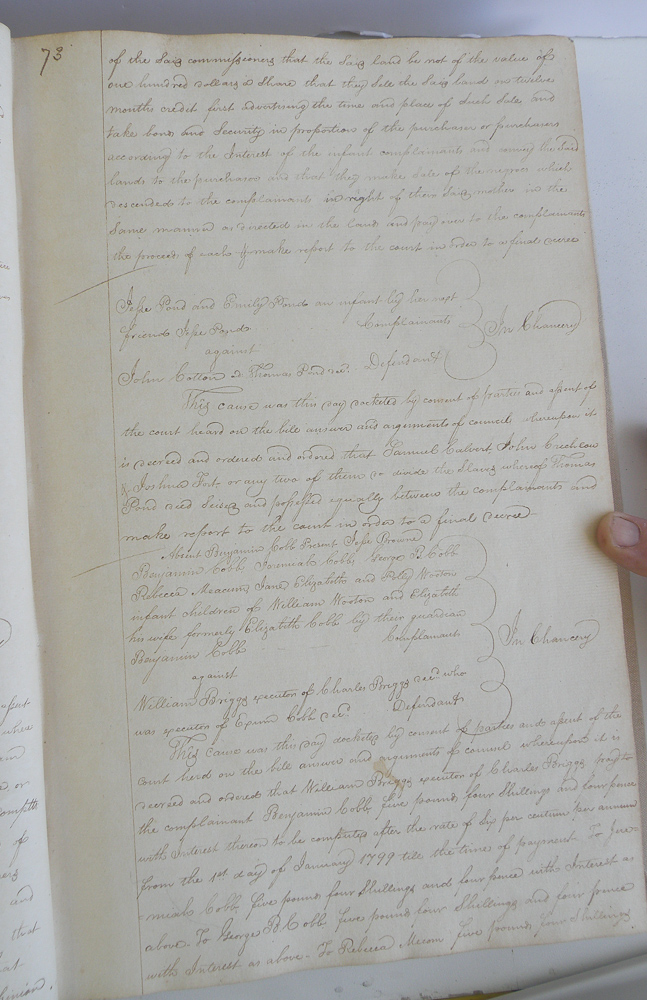 73
of the Said commissioners that the Said land be not of the value of
one hundred dollars a Share that they Sell the Said land on twelve
months credit first advertising the time and place of Such Sale and
take bond and Security in proportion of the purchaser or purchasers
according to the Interest of the infant complainants and convey the Said
lands to the purchaser and that they make Sale of the negroes which
descended to the complainants in right of their Said mother in the
Same manner as directed in the land and pay over to the complainants
the proceed of each & make report to the court in order to a final decree
Jesse Pond and Emily Pond an infant by her next
friend Jesse Pond Complainants
In Chancery
against
John Cotton & Thomas Pond decd. Defendant
This cause was this day docketed by consent of parties and assent of
the court heard on the bill answer and arguments of council whereupon it
is decreed and ordered and ordered that Samuel Calvert John Crechlow
& Joshua Fort or any two of them do divide the Slaves whereof Thomas
Pond died Seised and possessed equally between the complainants and
make report to the court in order to a final decree
Absent Benjamin Cobb Present Jesse Browne
Benjamin Cobb Jeremiah Cobb, George B Cobb
Rebecca Meacum Jane Elizabeth and Polly Wooton
infant children of William Wooton and Elizabeth
his wife formerly Elizabeth Cobb by their guardian
Benjamin Cobb Complainant
In Chancery
against
William Briggs executor of Charles Briggs decd. who
was executor of Exum Cobb decd. Defendants
This cause was this day docketed by consent of parties and assent of the
court herd on the bill answer and arguments of council whereupon it is
decreed and ordered that William Briggs executor of Charles Briggs pay to
the complainant Benjamin Cobb five pounds four Shillings and four pence
with Interest thereon to be computed after the rate of Six per centum per annum
from the 1st day of January 1799 till the time of payment. To Jere=
miah Cobb, five pound four Shillings and four pence with Interest as
above. To George B Cobb five pounds four Shillings and four pence
with Interest as above. To Rebecca Mecom five pounds four Shillings